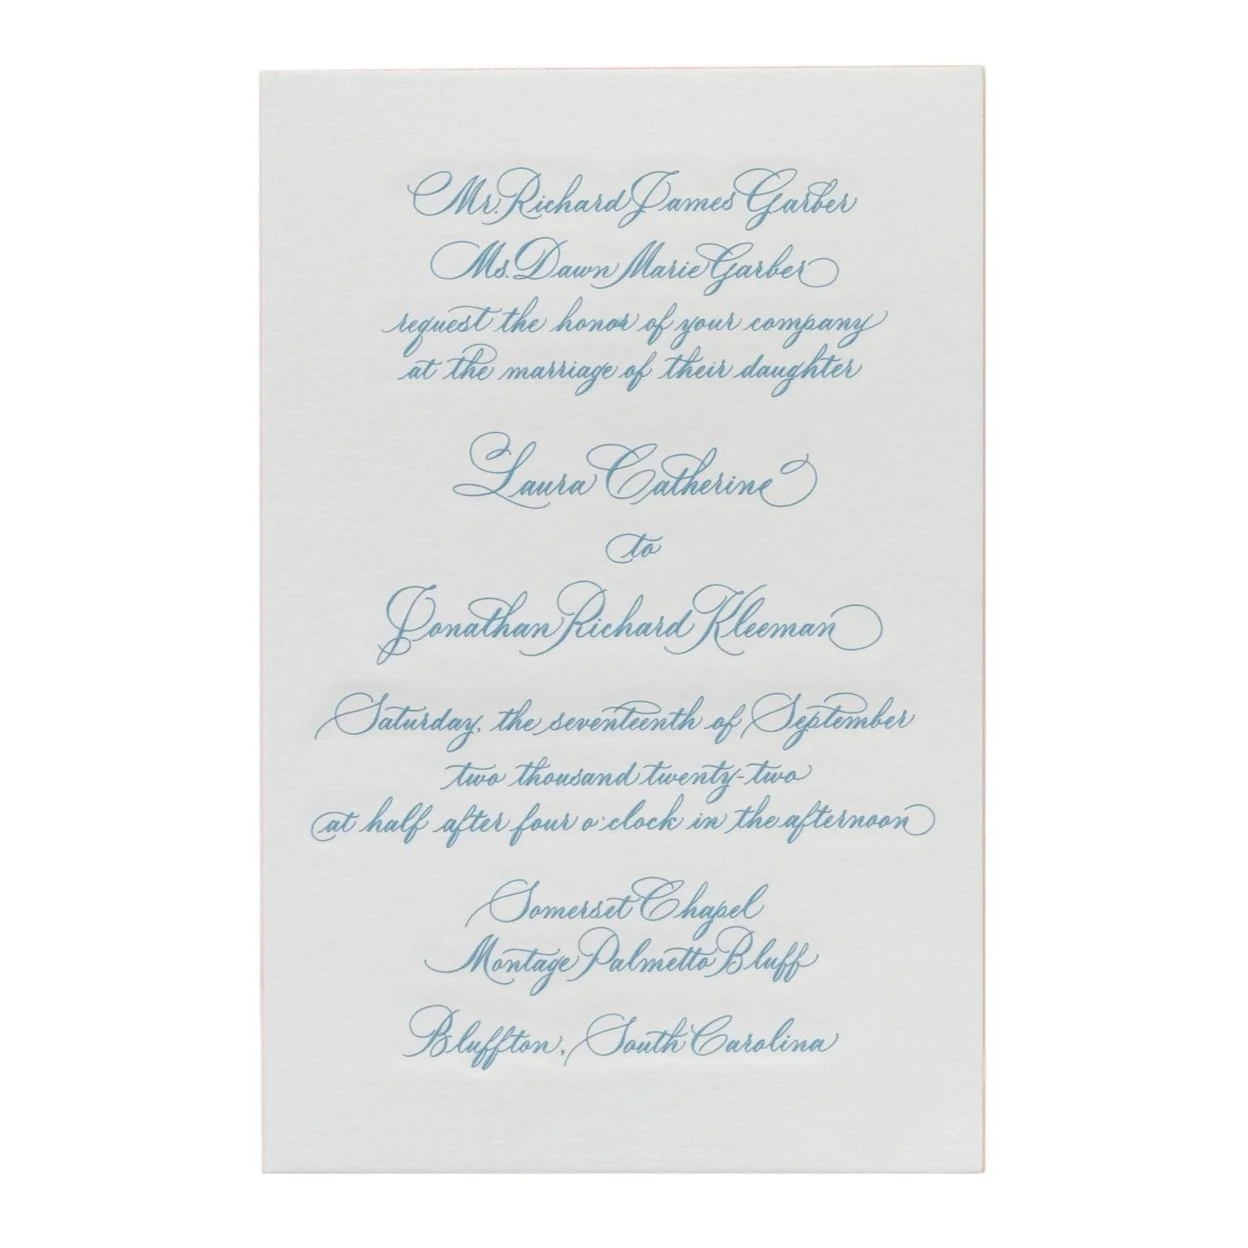 Mr. Richard James Garber
Ms. Dawn Marie Garber
request the honor of your company
at the marriage of their daughter
Laura Catherine
to
Jonathan Richard Kleeman
Saturday, the seventeenth of September
two thousand twenty-two
at half after four o'clock in the afternoon
Somerset Chapel
Montage Palmetto Bluff
Bluffton, South Carolina